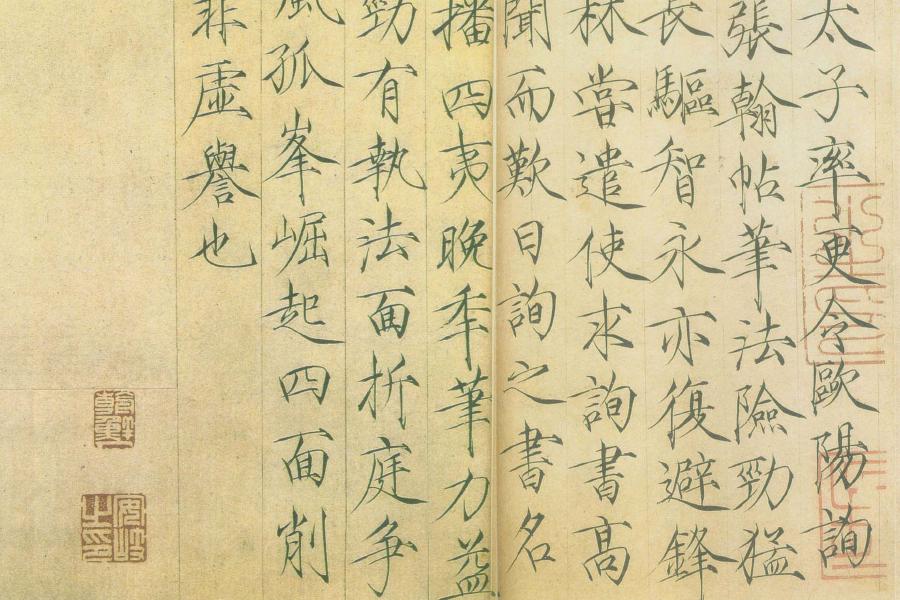 太子率更令歐陽詢
張翰帖筆法險勁猛
長驅智永亦復避鋒
林嘗遣使求詢書高
聞而歎曰詢之書名
播四夷晚秊筆力益
勁有執法面折庭争
風孤峯崛起四面削
非虛譽也
安岐之印